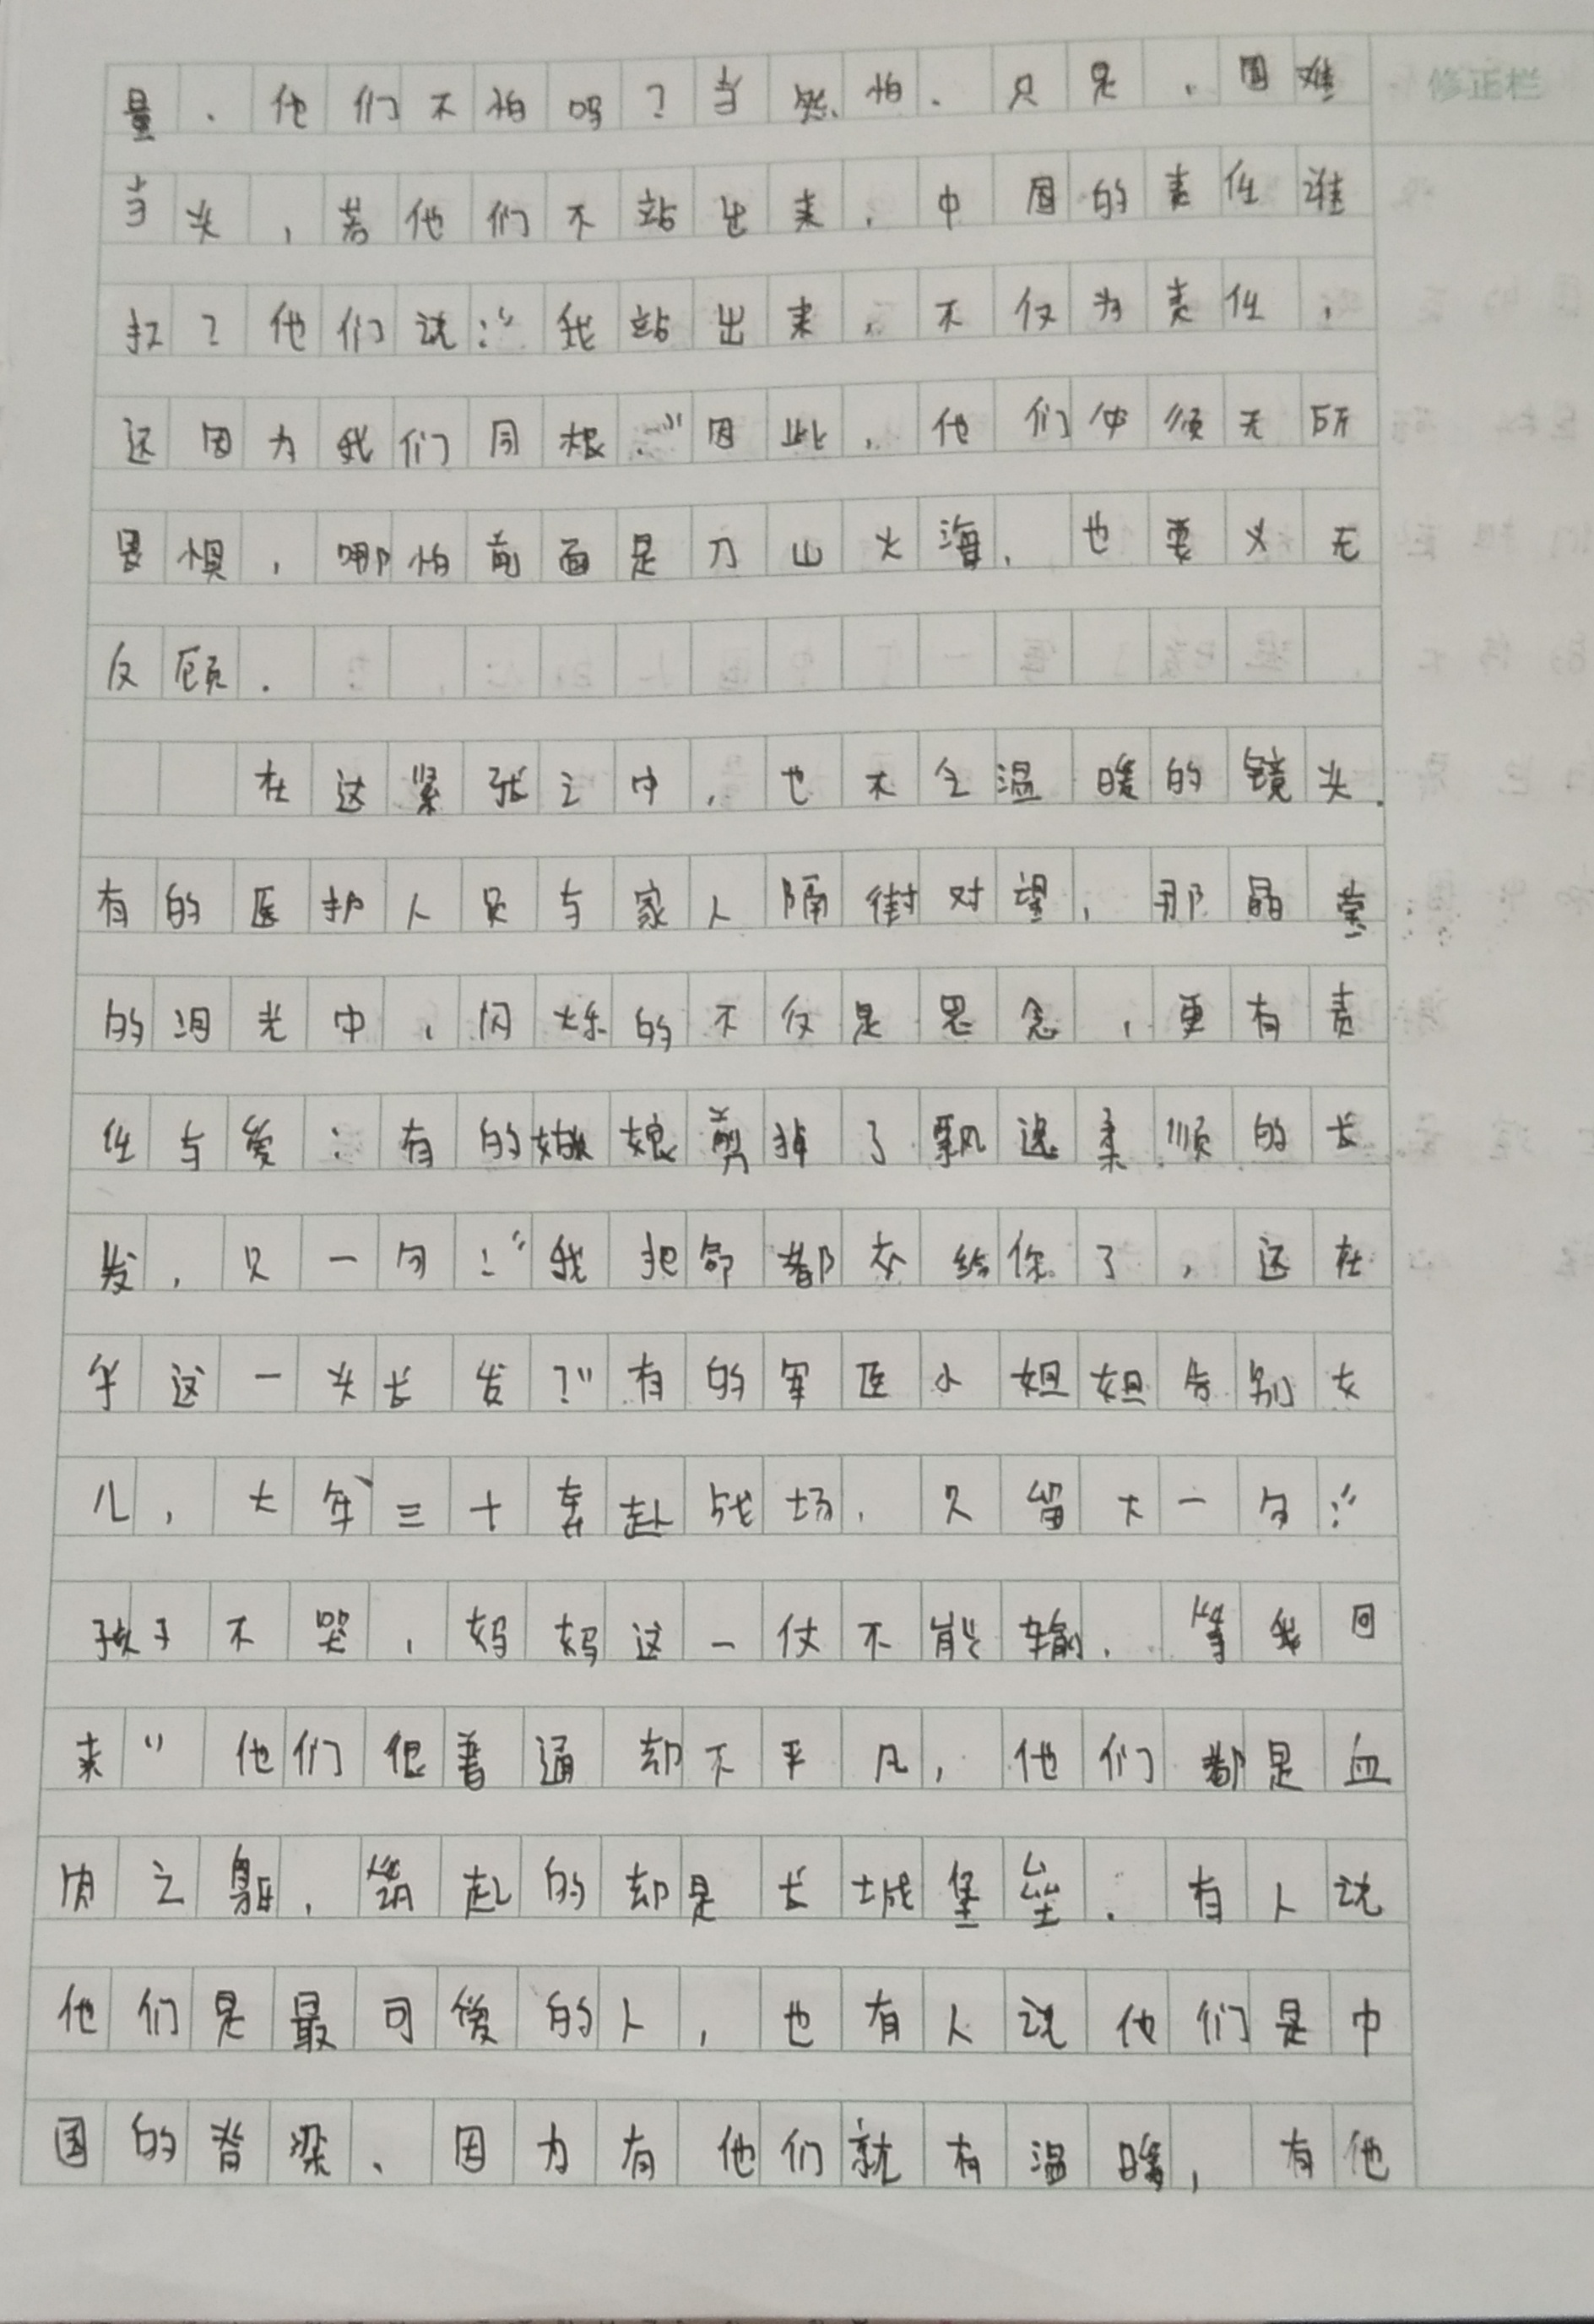 修正栏
量.他们不怕吗?当然怕.只是,国难
当头,若他们不站出来,中国的责任谁
扛?他们说:"我站出来,不仅为责任,
还因为我们同根."因此,他们必须无所
畏惧,哪怕前面是刀山火海,也要义无
反顾.
在这紧张之中,也不乏温暖的镜头.
有的医护人员与家人隔街对望,那晶莹
的泪光中,闪烁的不仅是思念,更有责
任与爱;有的姑娘剪掉了飘逸柔顺的长
发,只一句:"我把命都交给你了,还在
乎这一头长发?"有的军医小姐姐告别女
儿,大年三十奔赴战场,只留下一句:"
孩子不哭,妈妈这一仗不能输,等我回
来"他们很普通却不平凡,他们都是血
肉之躯,筑起的却是长城堡垒.有人说
他们是最可爱的人,也有人说他们是中
国的脊梁、因为有他们就有温暖,有他